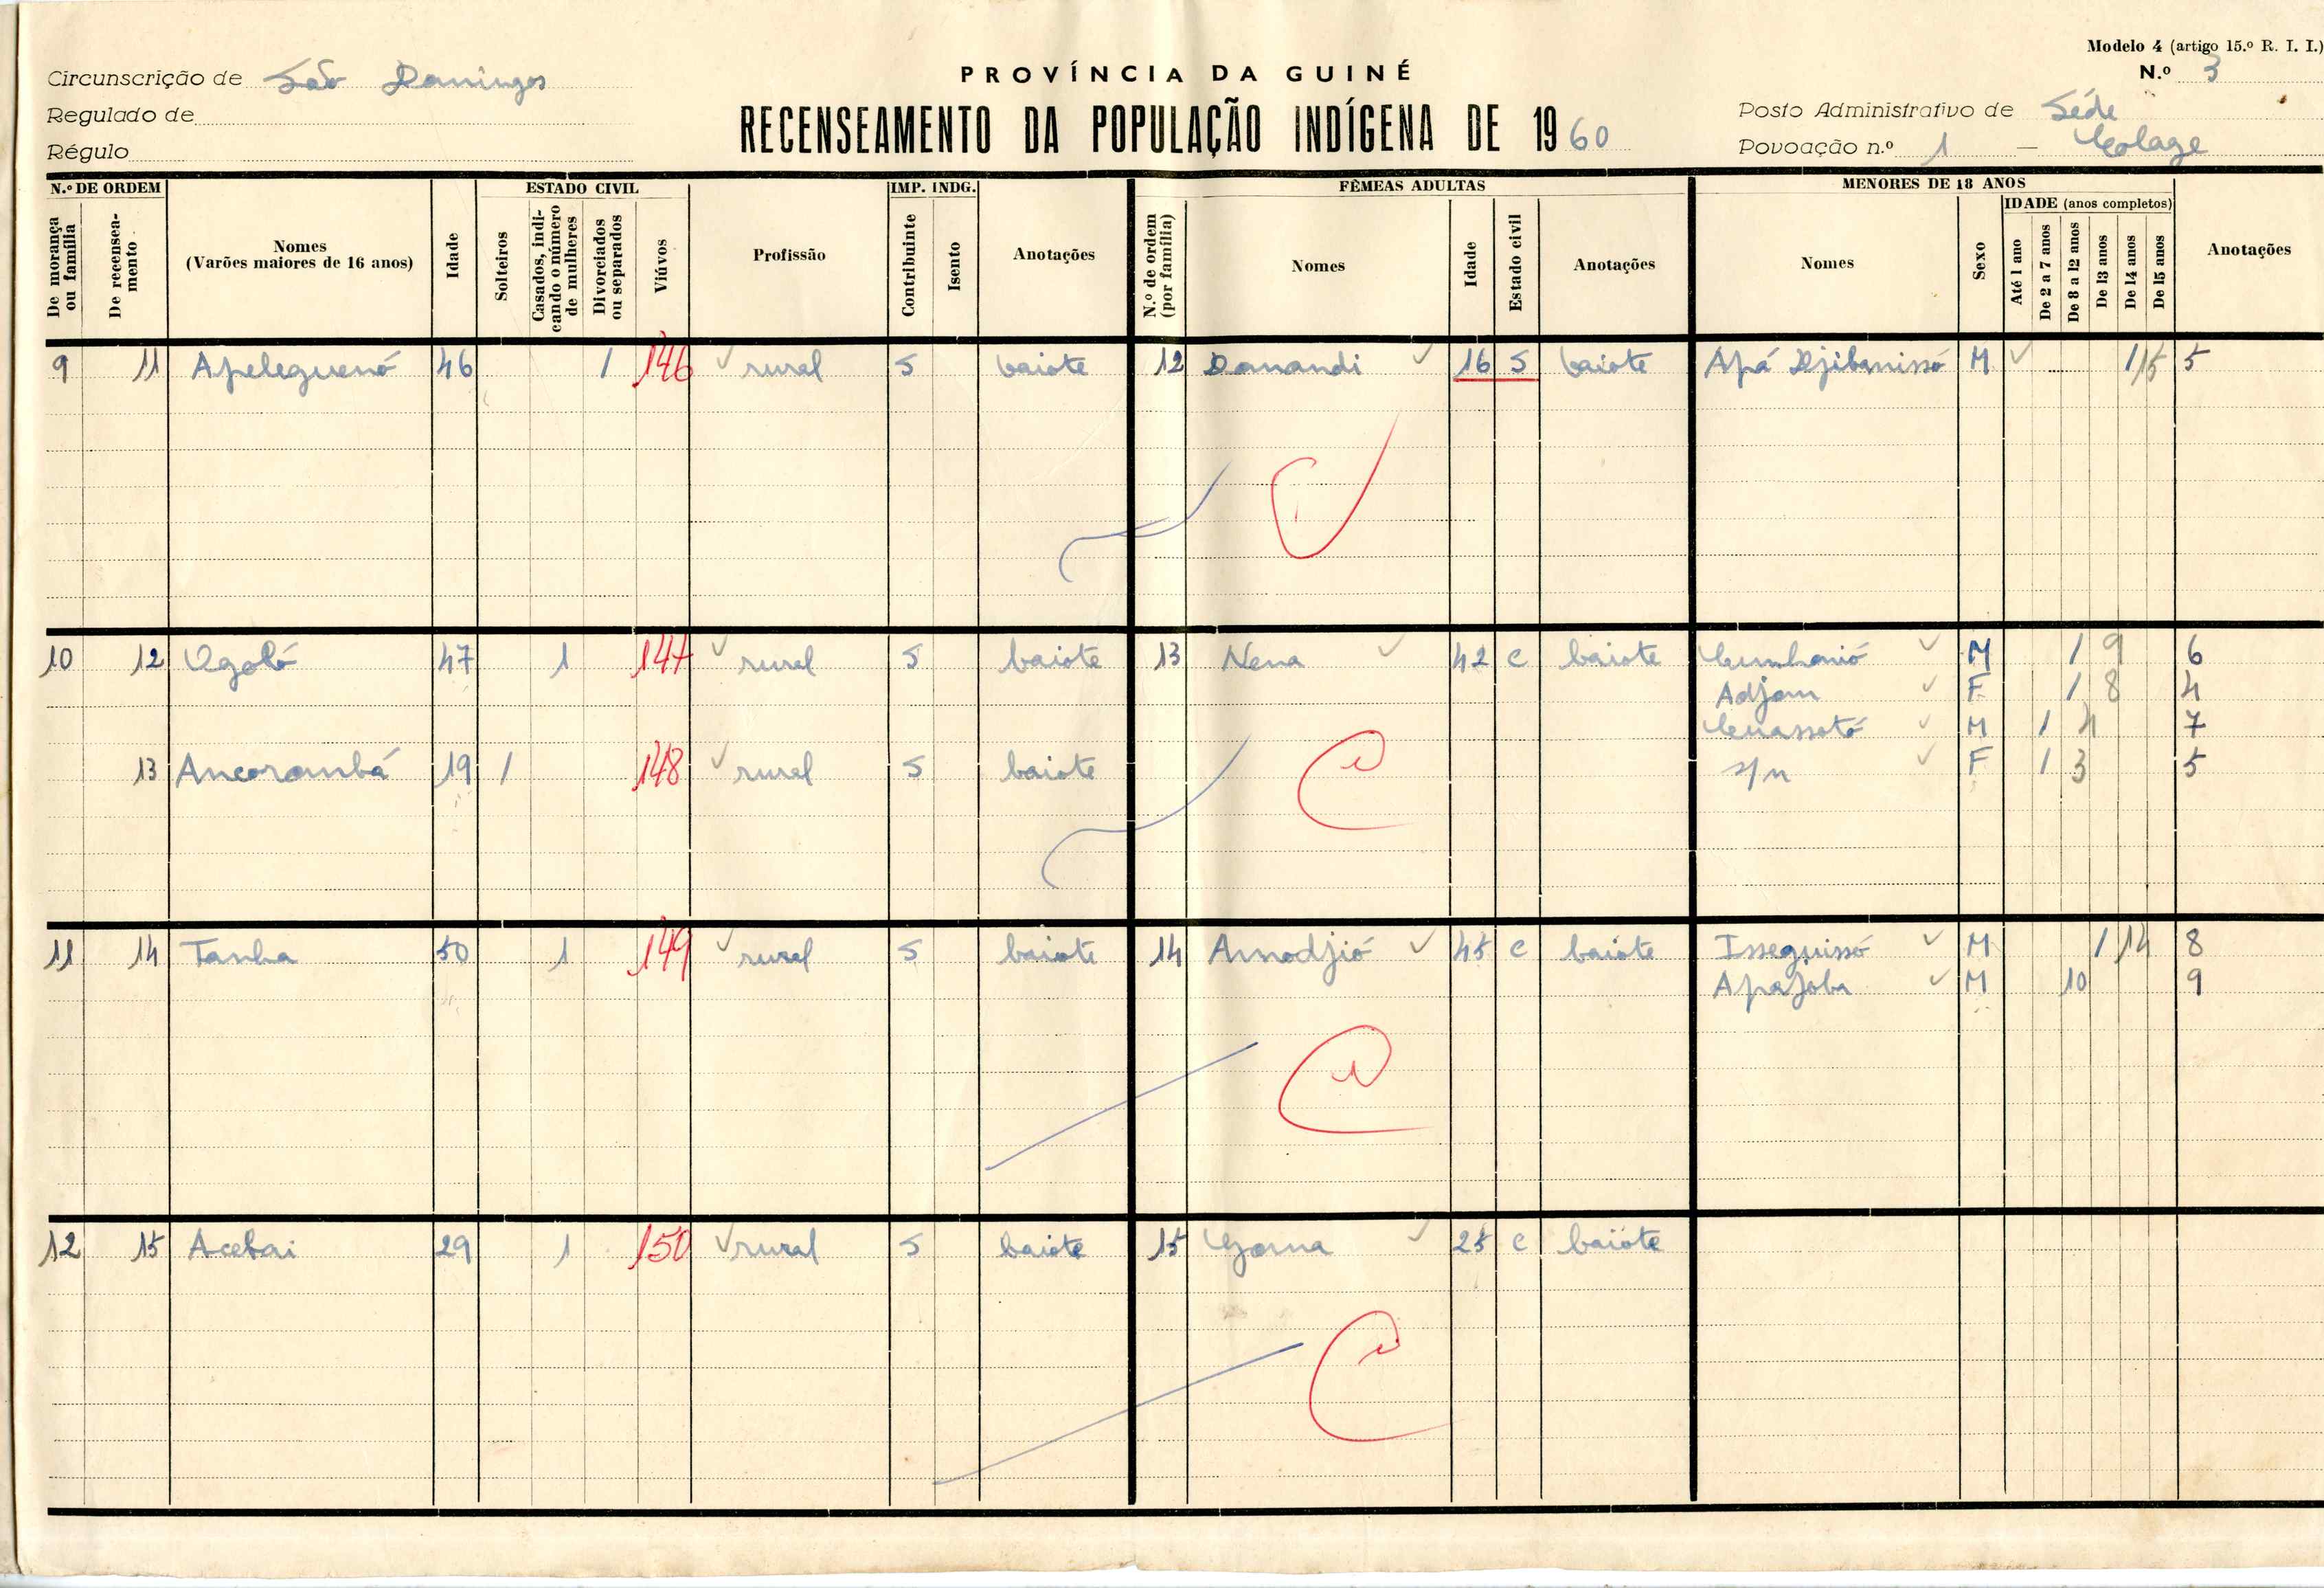 Modelo 4 (artigo 15.º R. I. I.)
PROVÍNCIA DA GUINÉ
N.º 3
Circunscrição de São Domingos
RECENSEAMENTO DA POPULAÇÃO INDÍGENA DE 1960
Posto Administrativo de Séde
Regulado de
Povoação n.º 1 — Colage
Régulo
N.º DE ORDEM
ESTADO CIVIL
IMP. INDG.
FÊMEAS ADULTAS
MENORES DE 18 ANOS
De morança ou família
De recensea-mento
Nomes
(Varões maiores de 16 anos)
Idade
Solteiros
Casados, indi-cando o número de mulheres
Divorciados ou separados
Viúvos
Profissão
Contribuinte
Isento
Anotações
N.º de ordem (por família)
Nomes
Idade
Estado civil
Anotações
Nomes
Sexo
IDADE (anos completos)
Até 1 ano
De 2 a 7 anos
De 8 a 12 anos
De 13 anos
De 14 anos
De 15 anos
Anotações
9 11 Apeleguenó 46 1 146 rural S baiote 12 Danandi 16 S baiote Apá Djibanissó M 1 15 5
10 12 Ugoló 47 1 147 rural S baiote 13 Nena 42 c baiote M 1 9 6
Adjam F 1 8 4
M 1 4 7
13 Ancorambá 19 1 148 rural S baiote s/n F 1 3 5
11 14 Tanha 50 1 149 rural S baiote 14 Amodjió 45 c baiote Isseguissó M 1 14 8
Apajoba M 10 9
12 15 Acebai 29 1 150 rural S baiote 15 25 c baiote